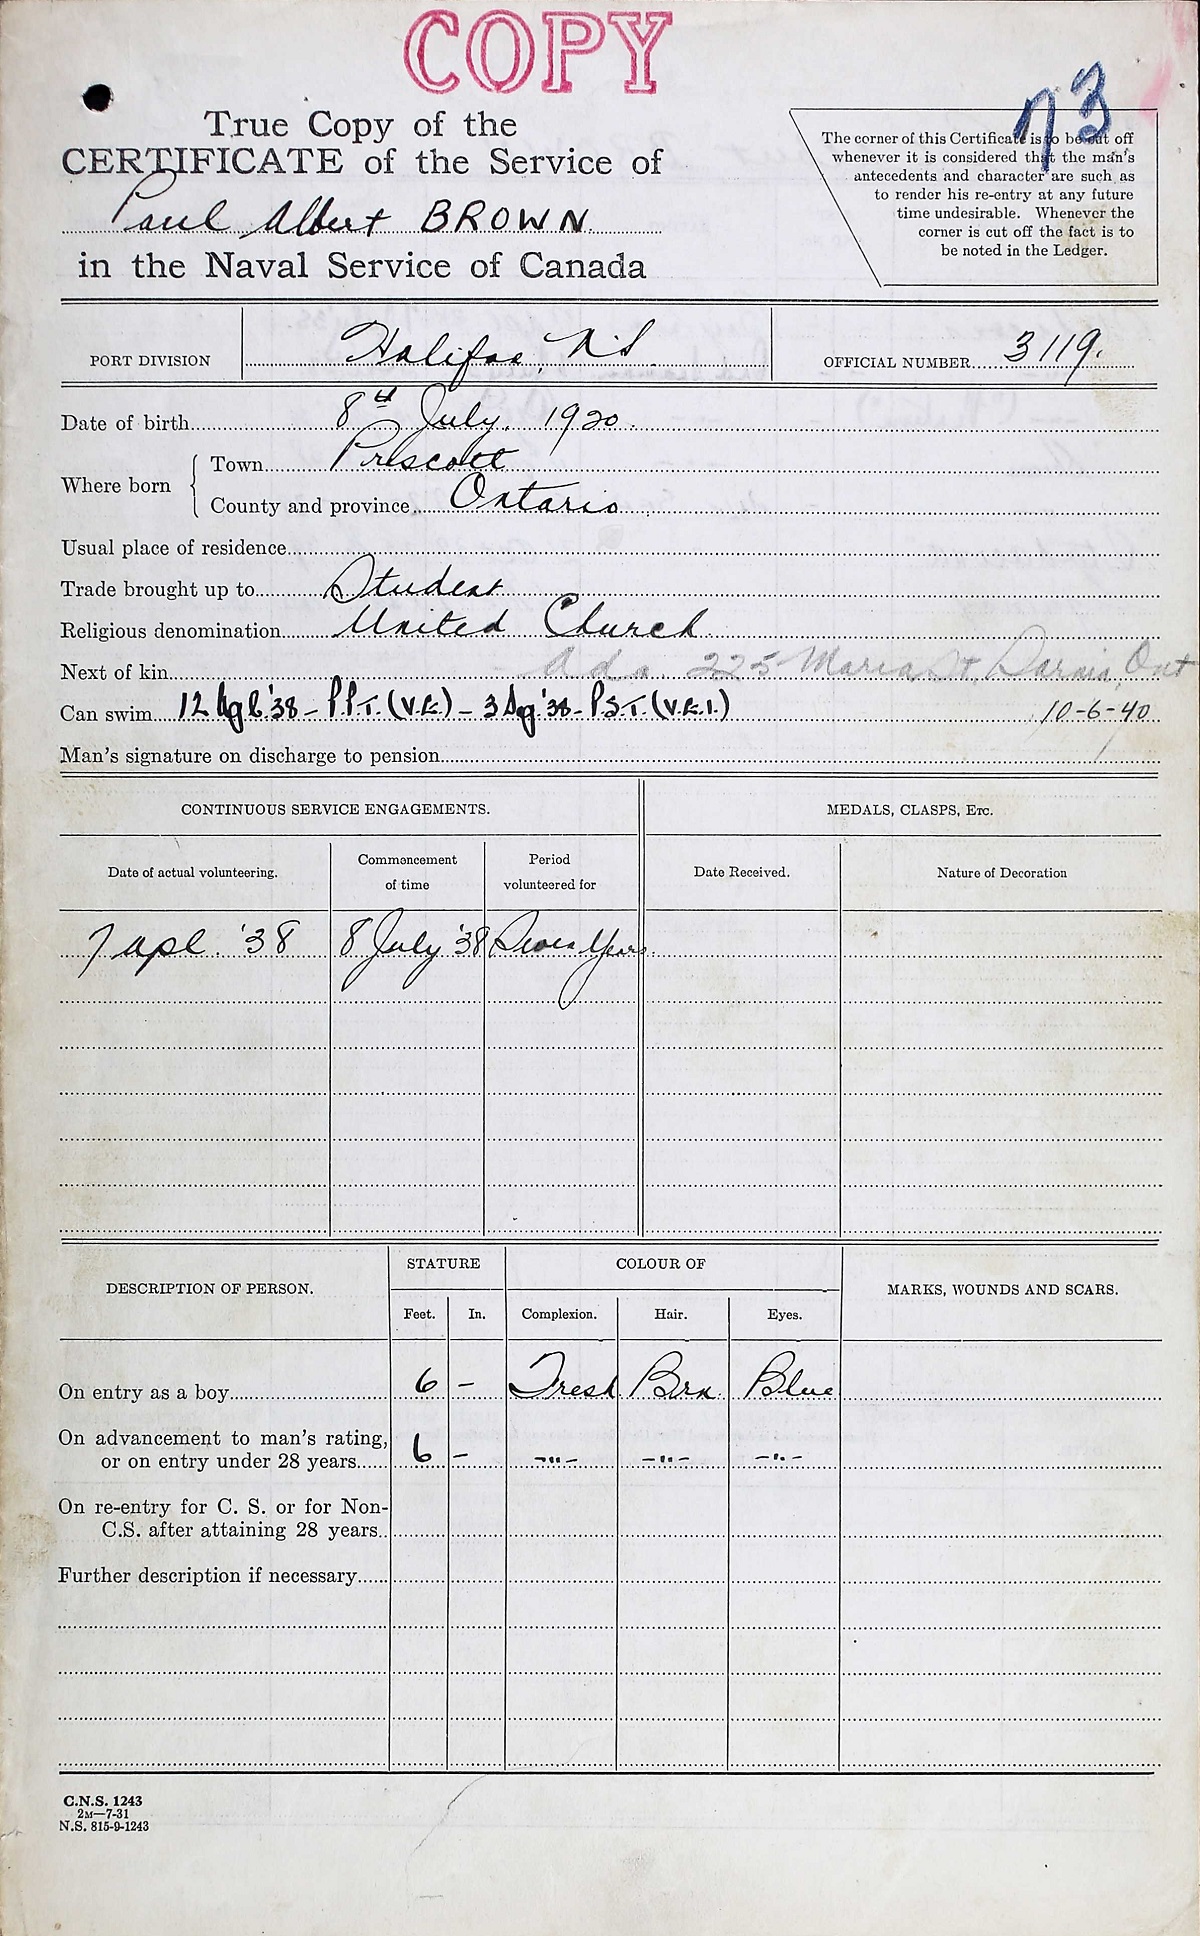 COPY
73
True Copy of the
CERTIFICATE of the Service of
Paul Albert BROWN
in the Naval Service of Canada
The corner of this Certificate is to be cut off
whenever it is considered that the man's
antecedents and character are such as
to render his re-entry at any future
time undesirable. Whenever the
corner is cut off the fact is to
be noted in the Ledger.
PORT DIVISION Halifax, N.S OFFICIAL NUMBER 3119.
Date of birth 8th July, 1920.
Where born
Town Prescott
County and province Ontario
Usual place of residence
Trade brought up to Student
Religious denomination United Church
Next of kin Ada 225 Maria St. Sarnia, Ont
Can swim 12 '38 - P.P.T. (V.G.) - 3 '38 - P.S.T. (V.G.I.) 10-6-40
Man's signature on discharge to pension
CONTINUOUS SERVICE ENGAGEMENTS. MEDALS, CLASPS, Etc.
Date of actual volunteering. Commencement of time Period volunteered for Date Received. Nature of Decoration
7 apl. '38 8 July '38 Seven Years.
DESCRIPTION OF PERSON. STATURE COLOUR OF MARKS, WOUNDS AND SCARS.
Feet. In. Complexion. Hair. Eyes.
On entry as a boy 6 - Fresh Brn. Blue
On advancement to man's rating,
or on entry under 28 years 6 - -"- -"- -"-
On re-entry for C. S. or for Non-
C.S. after attaining 28 years
Further description if necessary
C.N.S. 1243
2M—7-31
N.S. 815-9-1243